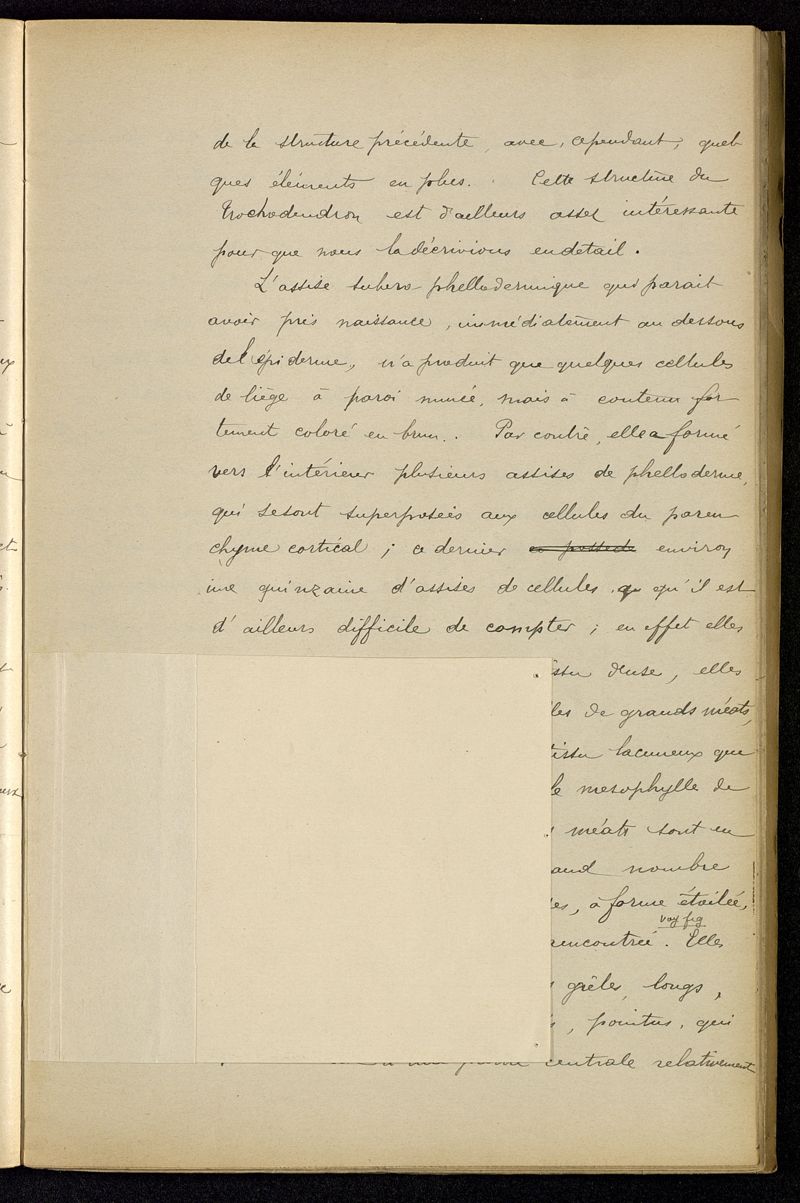 de la structure précédente, avec, cependant, quel-
ques éléments en plus. Cette structure du
Trochodendron est d'ailleurs assez intéressante
pour que nous la décrivions en détail.
L'assise subero-phellodermique qui parait
avoir pris naissance, immédiatement au dessous
de l'épiderme, n'a produit que quelques cellules
de liège à paroi mince, mais à contenu for
tement coloré en brun. Par contre, elle a formé
vers l'intérieur plusieurs assises de phelloderme,
qui se sont superposées aux cellules du paren
chyme cortical; ce dernier en possède environ
une quinzaine d'assises de cellules, qu'il est
d'ailleurs difficile de compter; en effet elles
issu dense, elles
les de grands méats,
tissu lacuneux que
le mesophylle de
méats sont en
and nombre
es, à forme étoilée,
voy fig
rencontrée. Elles
grêles, longs,
, pointus, qui
centrale relativement